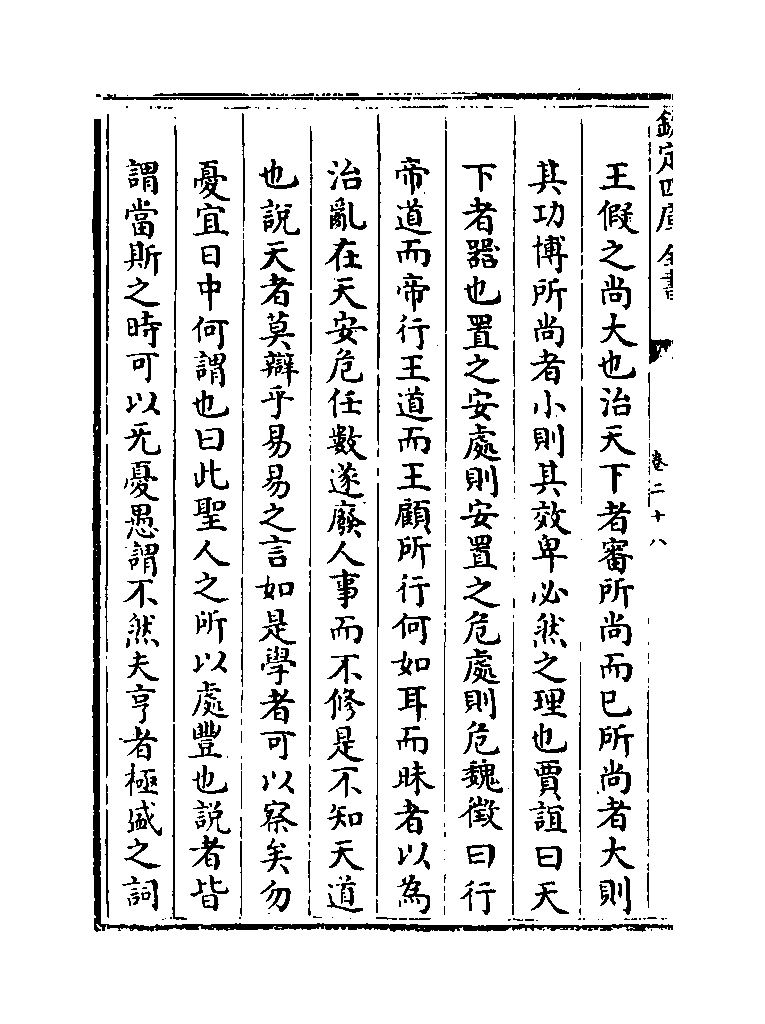 欽定四庫全書
卷二十八
王假之尚大也治天下者審所尚而已所尚者大則
其功博所尚者小則其效卑必然之理也賈誼曰天
下者器也置之安處則安置之危處則危魏徵曰行
帝道而帝行王道而王顧所行何如耳而昧者以為
治亂在天安危任數遂廢人事而不修是不知天道
也說天者莫辯乎易易之言如是學者可以察矣勿
憂宜日中何謂也曰此聖人之所以處豐也說者皆
謂當斯之時可以无憂愚謂不然夫亨者極盛之詞